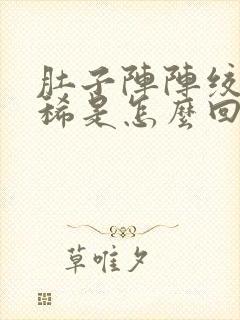 肚子陣陣绞
稀是怎麼回
草唯夕